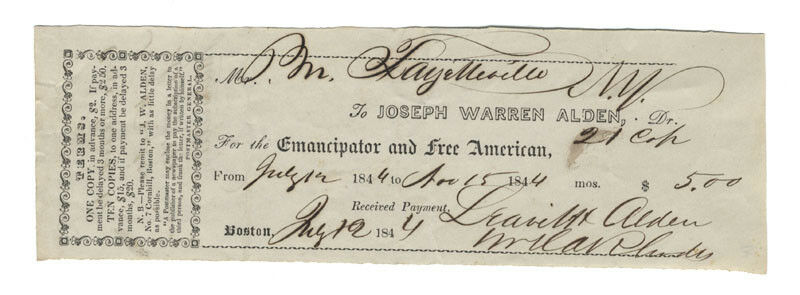 TERMS.
ONE COPY, in advance, $2. If pay-
ment be delayed 3 months or more, $2 50.
TEN COPIES, to one address, in ad-
vance, $15, and if payment be delayed 3
months, $20.
N. B.—Please remit to "J. W. ALDEN,
No. 7 Cornhill, Boston," with as little delay
as possible.
"A Postmaster may enclose the money in a letter to
the publisher of a newspaper to pay the subscription of a
third person, and frank the letter, if written by himself."
POSTMASTER GENERAL.
Mr. Fayetteville N.Y.
To JOSEPH WARREN ALDEN, Dr.
For the Emancipator and Free American, 21 Cop
From July 12 1844 to Nov 15 1844 mos. $ 5.00
Received Payment,
Leavitt & Alden
Boston, July 12 1844